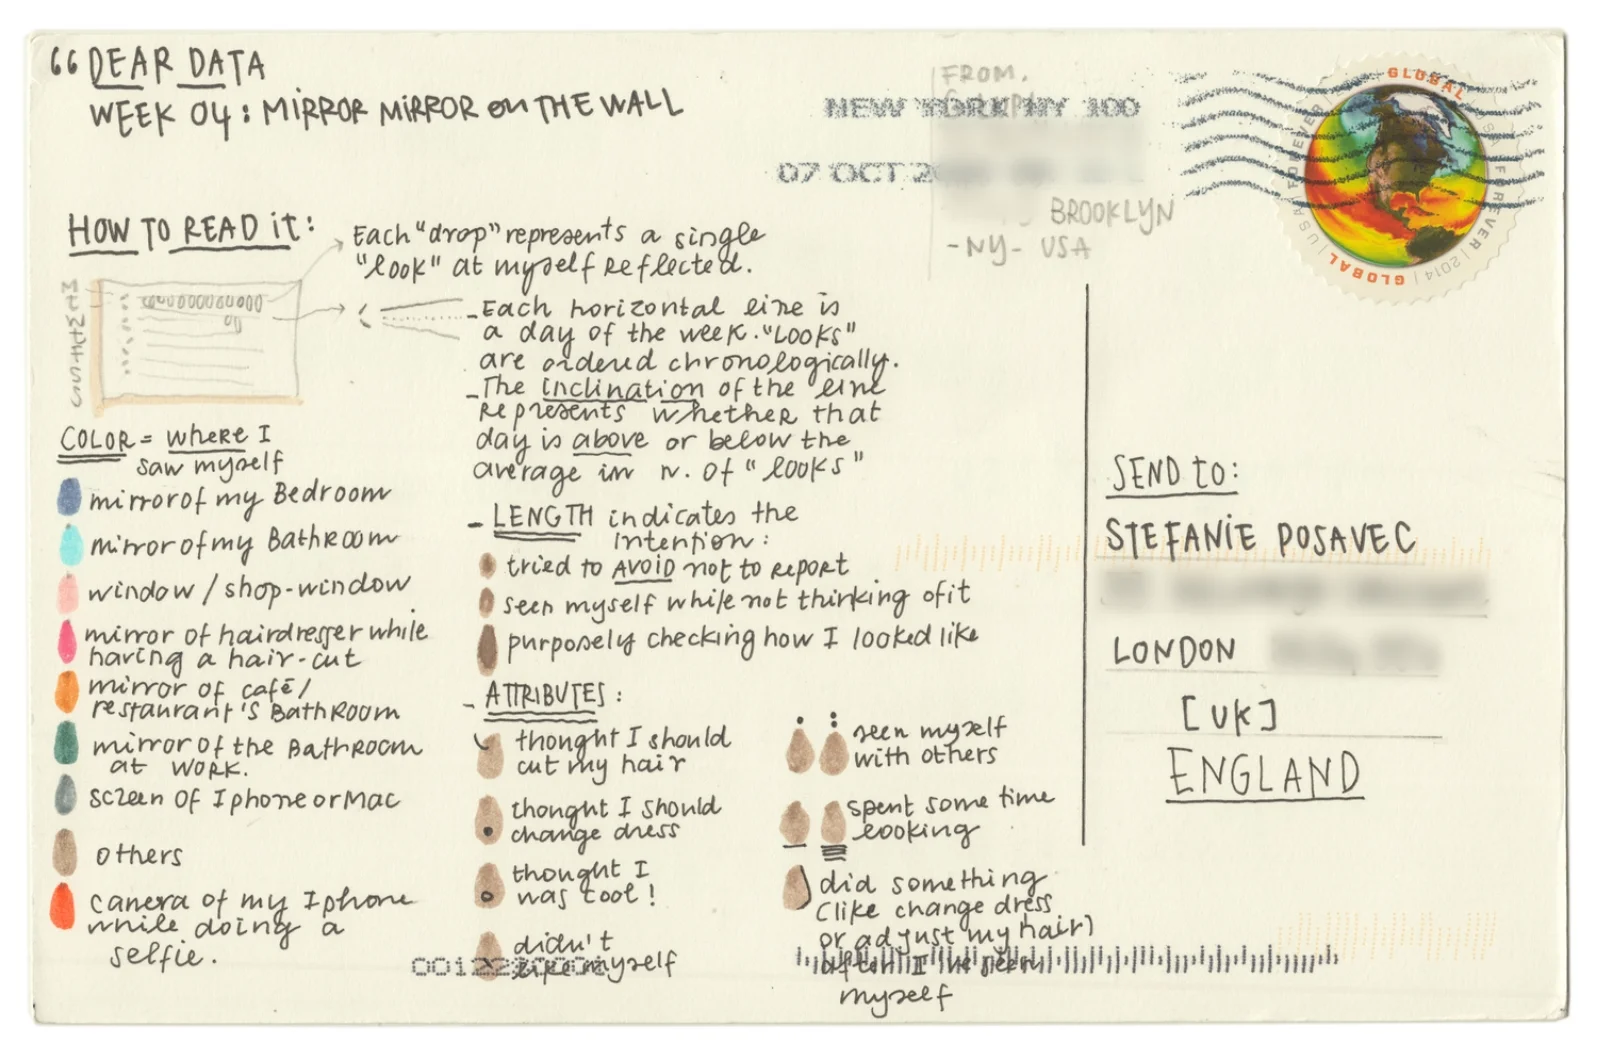 “DEAR DATA
WEEK 04: MIRROR MIRROR ON THE WALL
FROM.
NEW YORK NY 100
07 OCT 2
BROOKLYN
-NY- USA
GLOBAL
USA FOREVER
FOREVER | 2014 |
GLOBAL
HOW TO READ it:
Each "drop" represents a single
"look" at myself reflected.
- Each horizontal line is
a day of the week. "Looks"
are ordered chronologically.
- The inclination of the line
represents whether that
day is above or below the
average in n. of "looks"
COLOR = where I
saw myself
mirror of my Bedroom
mirror of my Bathroom
window / shop-window
mirror of hairdresser while
having a hair-cut
mirror of café/
restaurant's BathRoom
mirror of the BathRoom
at work.
screen of Iphone or Mac
others
camera of my Iphone
while doing a
selfie.
- LENGTH indicates the
intention:
tried to AVOID not to report
seen myself while not thinking of it
purposely checking how I looked like
- ATTRIBUTES:
thought I should
cut my hair
thought I should
change dress
thought I
was cool!
didn't
like myself
seen myself
with others
spent some time
looking
did something
(like change dress
or adjust my hair)
after I've seen
myself
SEND to:
STEFANIE POSAVEC
LONDON
[UK]
ENGLAND